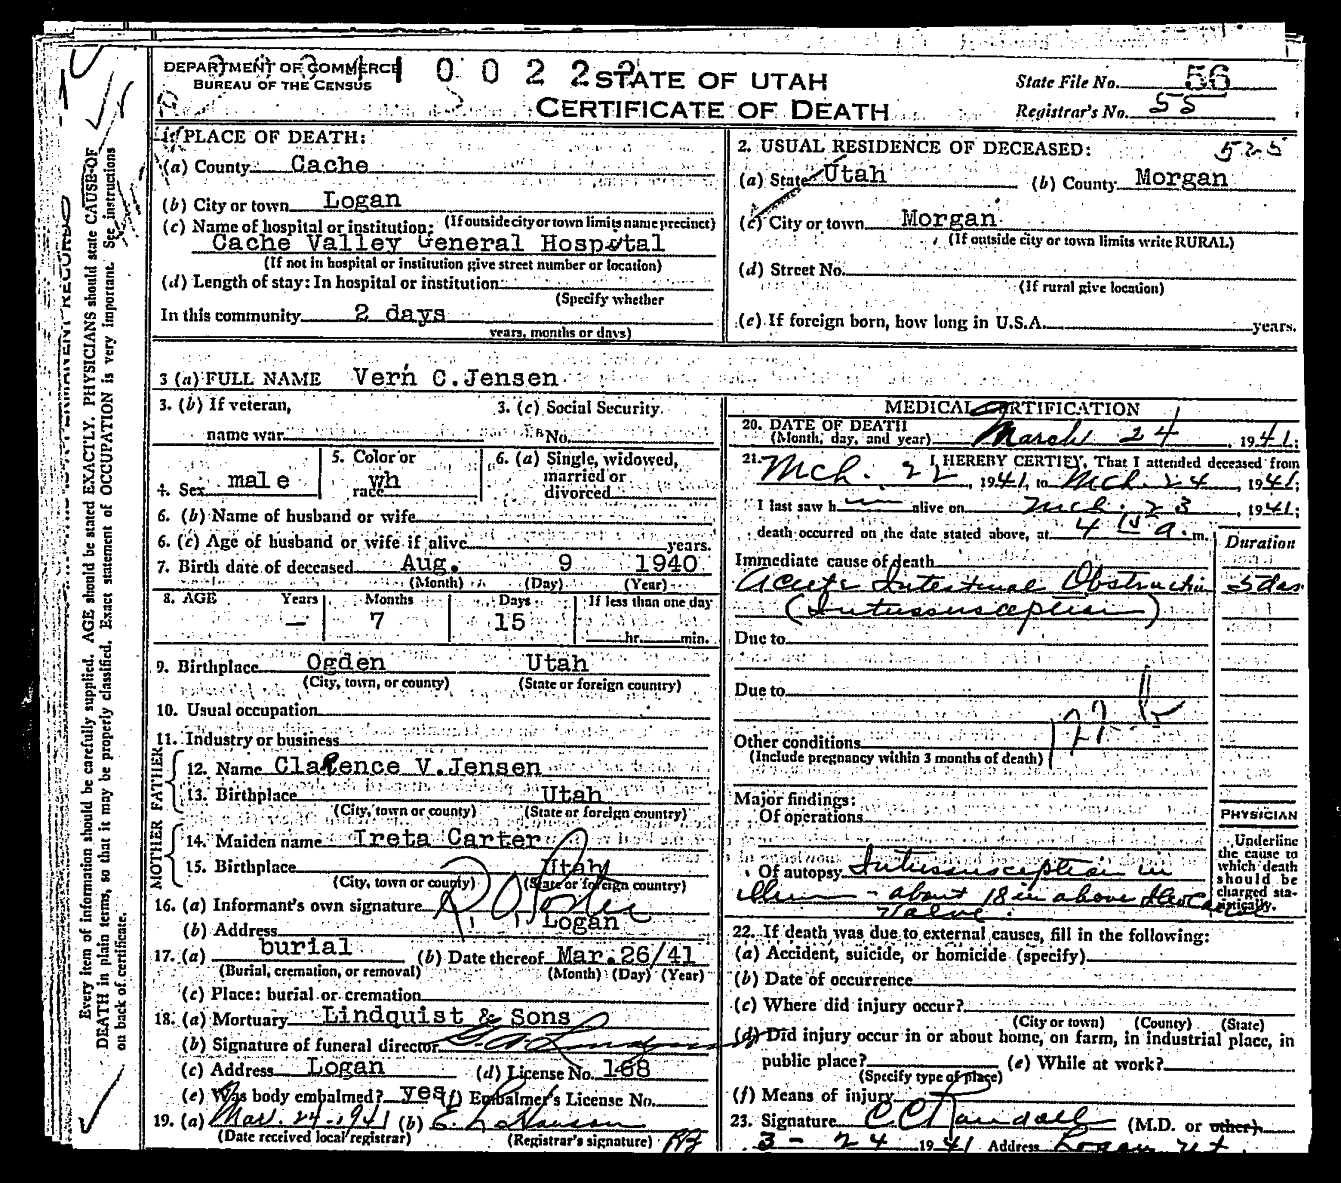 DEPARTMENT OF COMMERCE
BUREAU OF THE CENSUS
1 0 0 2 2 2
STATE OF UTAH
CERTIFICATE OF DEATH
State File No. 56
Registrar's No. 55
1. PLACE OF DEATH:
(a) County Cache
(b) City or town Logan
(If outside city or town limits name precinct)
(c) Name of hospital or institution:
Cache Valley General Hospital
(If not in hospital or institution give street number or location)
(d) Length of stay: In hospital or institution
(Specify whether
In this community 2 days
years, months or days)
2. USUAL RESIDENCE OF DECEASED: 525
(a) State Utah (b) County Morgan
(c) City or town Morgan
(If outside city or town limits write RURAL)
(d) Street No.
(If rural give location)
(e) If foreign born, how long in U.S.A. years.
3 (a) FULL NAME Vern C. Jensen
3. (b) If veteran, name war
3. (c) Social Security No.
4. Sex male
5. Color or race wh
6. (a) Single, widowed, married or divorced
6. (b) Name of husband or wife
6. (c) Age of husband or wife if alive years.
7. Birth date of deceased Aug. 9 1940
(Month) (Day) (Year)
8. AGE Years Months Days If less than one day
— 7 15 hr. min.
9. Birthplace Ogden Utah
(City, town, or county) (State or foreign country)
10. Usual occupation
11. Industry or business
FATHER
12. Name Clarence V. Jensen
13. Birthplace Utah
(City, town or county) (State or foreign country)
MOTHER
14. Maiden name Ireta Carter
15. Birthplace Utah
(City, town or county) (State or foreign country)
16. (a) Informant's own signature R. O. Porter
(b) Address Logan
17. (a) burial (b) Date thereof Mar. 26/41
(Burial, cremation, or removal) (Month) (Day) (Year)
(c) Place: burial or cremation
18. (a) Mortuary Lindquist & Sons
(b) Signature of funeral director
(c) Address Logan (d) License No. 168
(e) Was body embalmed? yes (f) Embalmer's License No.
19. (a) Mar. 24, 1941 (b) E. L. Hanson
(Date received local registrar) (Registrar's signature)
MEDICAL CERTIFICATION
20. DATE OF DEATH
(Month, day, and year) March 24, 1941;
21. I HEREBY CERTIFY, That I attended deceased from
Mch. 22, 1941, to Mch. 24, 1941;
I last saw h im alive on Mch. 23, 1941;
death occurred on the date stated above, at 4 15 a. m.
Duration
Immediate cause of death
Acute Intestinal Obstruction 3 das
(Intussusception)
Due to
Due to
122 b
Other conditions
(Include pregnancy within 3 months of death)
Major findings:
Of operations
Of autopsy Intussusception in
Ilium - about 18 in above Ileocaecal
Valve.
PHYSICIAN
Underline the cause to which death should be charged statistically.
22. If death was due to external causes, fill in the following:
(a) Accident, suicide, or homicide (specify)
(b) Date of occurrence
(c) Where did injury occur?
(City or town) (County) (State)
(d) Did injury occur in or about home, on farm, in industrial place, in
public place? (e) While at work?
(Specify type of place)
(f) Means of injury
23. Signature C C Randall (M.D. or other)
3 - 24 1941 Address Logan Ut.
Every item of information should be carefully supplied. AGE should be stated EXACTLY. PHYSICIANS should state CAUSE OF
DEATH in plain terms, so that it may be properly classified. Exact statement of OCCUPATION is very important. See instructions
on back of certificate.